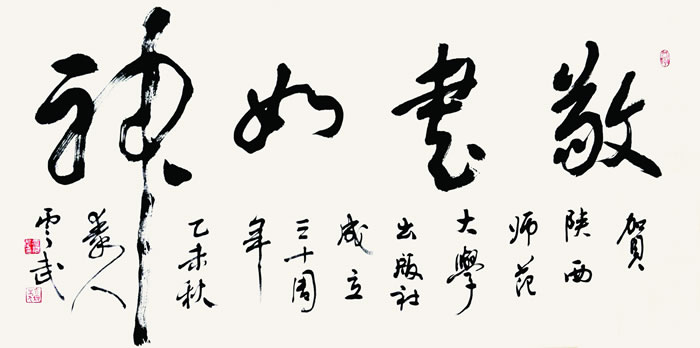 敬書如神
賀
陕西
师范
大學
出版社
成立
三十周
年
乙未秋
人
雲武